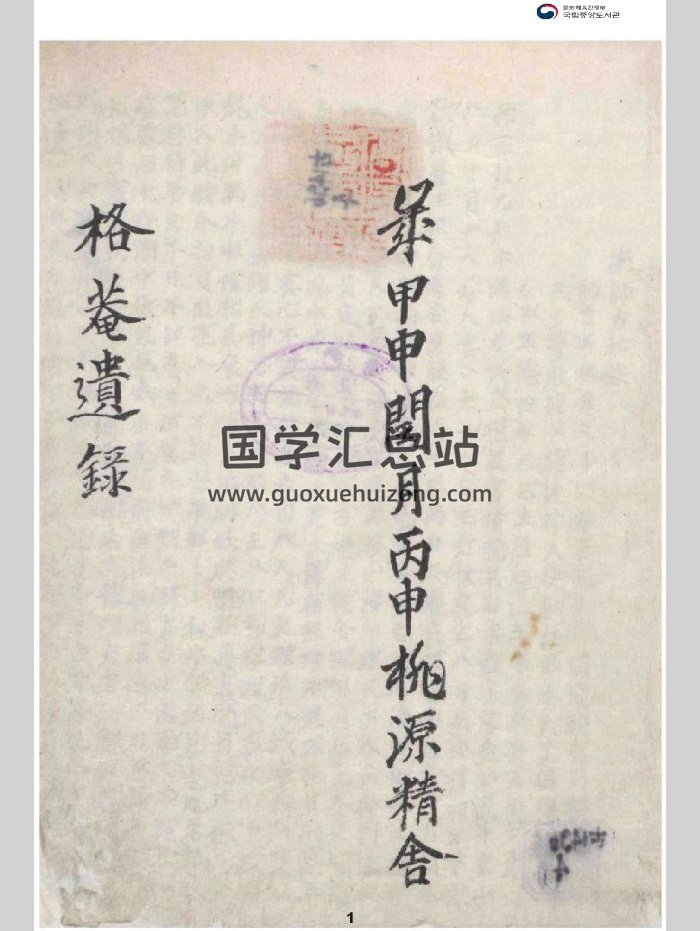 문화체육관광부
국립중앙도서관
歲甲申閏月丙申桃源精舍
格菴遺錄
国学汇总站
www.guoxuehuizong.com
1